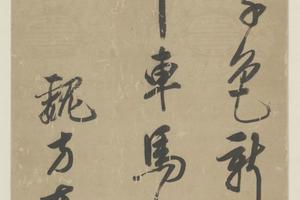 色新
車馬
魏方